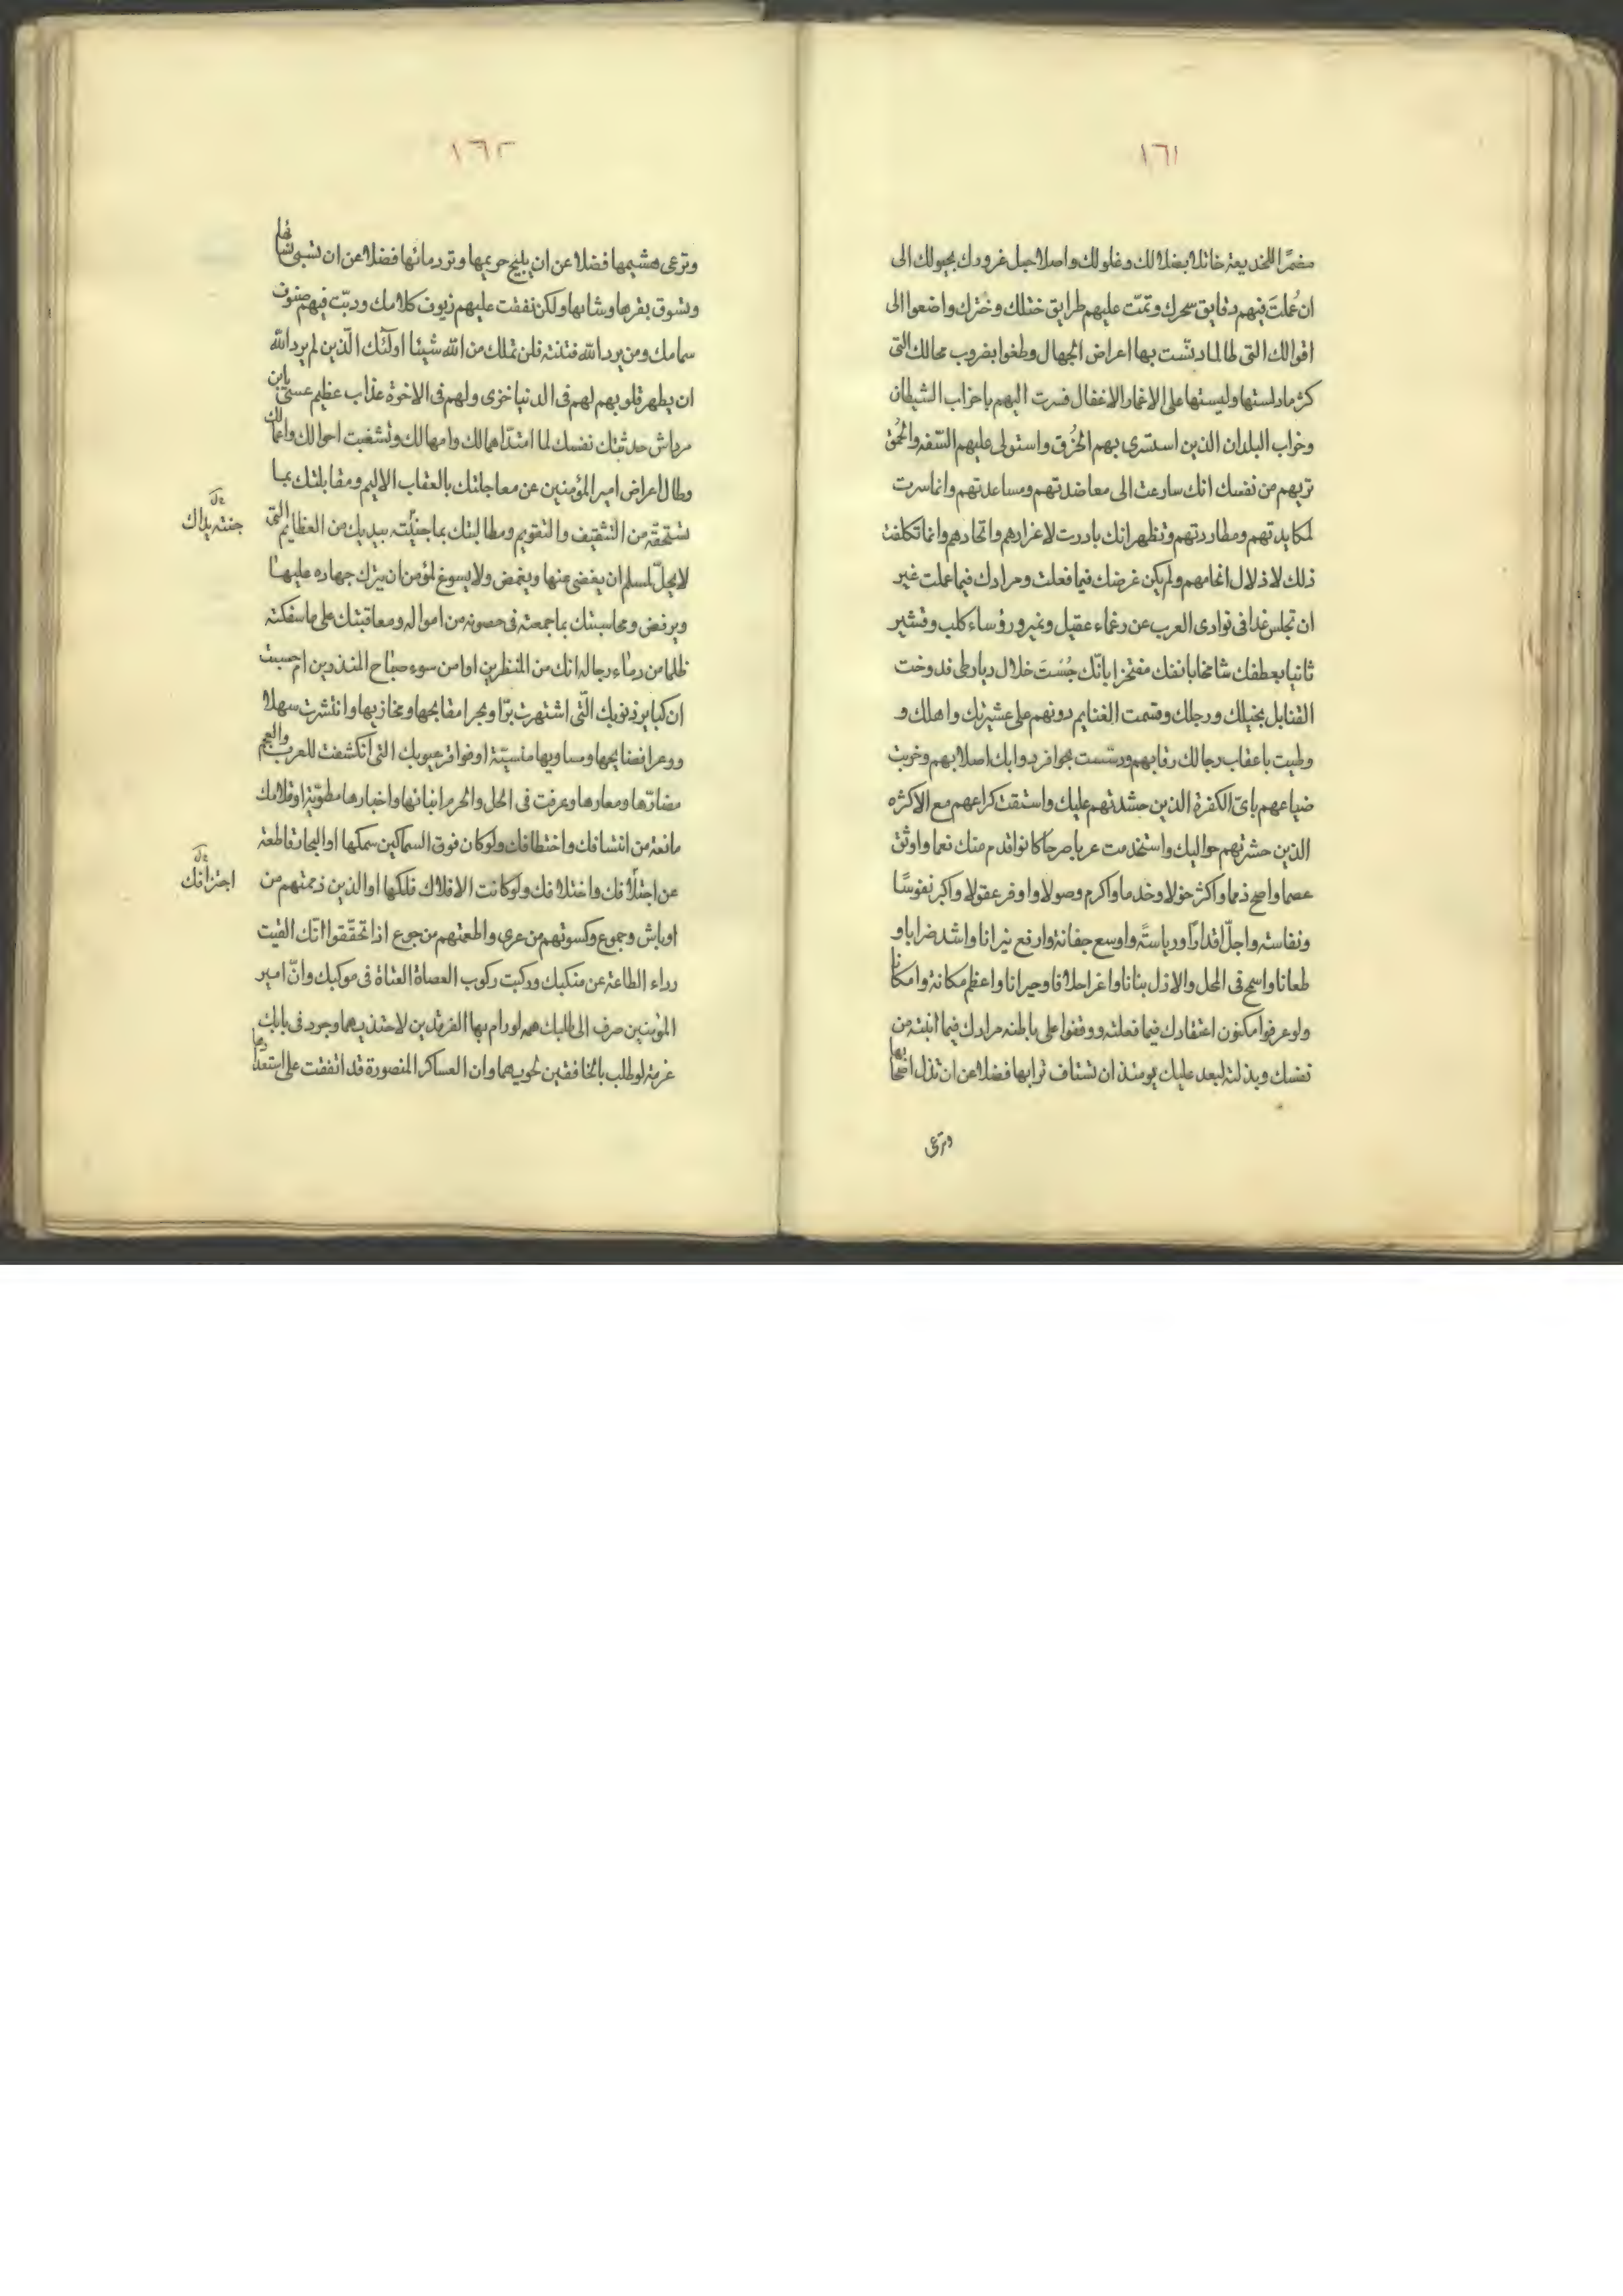 ١٦١
مضمرا للخديعة خاتلا بضلالك وغلولك واصلا حبل غرورك بحبولك الى
ان عُملت فيهم دقايق سحرك وتمّت عليهم طرايق ختلك وخترك واضعوا الى
اقوالك التى طالما دنّست بها اعراض الجهال وطغوا بضروب محالك التى
كثر ما دلستها ولبستها على الاغمار الاغفال فسرت اليهم باحزاب الشيطان
وخراب البلدان الذين استسرى بهم الخُرق واستولى عليهم السّفه والحُمق
تريهم من نفسك انك سارعت الى معاضدتهم ومساعدتهم وانما سرت
لمكايدتهم ومطاردتهم وتظهر انك بادرت لاعزازهم واتحادهم وانما تكلفت
ذلك لاذلال اتحامهم ولم يكن غرضك فيما فعلت ومرادك فيما عملت غير
ان تجلس غدا فى نوادى العرب عن زعماء عقيل ونمير ورؤساء كلب وقشير
ثانيا بعطفك شامخا بانفك مفتخرا بانّك جُسَت خلال ديار طى قد دوخت
القنابل بخيلك ورجلك وقسمت الغنايم دونهم على عشيرتك واهلك و
وطيت باعقاب رجالك رقابهم ودسّست بحوافر دوابك اصلابهم وخربت
ضياعهم باىّ الكفرة الذين حشدتهم عليك واستقت كراعهم مع الاكثره
الذين حشرتهم حواليك واستخدمت عربا صرحا كانوا قدم منك نعما واوثق
عصما واصح ذمما واكثر خولا وخدما واكرم وصولا واوفر عقولا واكبر نفوسًا
ونفاسة واجلّ اقدارًا ورياسةً واوسع جفانة وارفع نيرانا واشد ضرابا و
طعانا واسمح فى المحل والازل بنانا واغر احلاقا وجيرانا واعظم مكانة وامكانا
ولو عرفوا مكنون اعتقادك فيما فعلته ووقفوا على باطنه مرادك فيما اتيته من
نفسك وبذلته لبعد عليك يومئذ ان تشتاف ترابها فضلا عن ان تذل اصحابها
وترعى
١٦٢
وترعى هشيمها فضلا عن ان يليح حريمها وتورد مائها فضلا عن ان تسبى نسائها
وتسوق بقرها وشائها ولكن نفقت عليهم زيوف كلامك ودبّت فيهم صنوف
سمامك ومن يرد الله فتنته فلن تملك من الله شيئا اولئك الّذين لم يرد الله
ان يطهر قلوبهم لهم فى الدنيا خزى ولهم فى الاخرة عذاب عظيم عسى يابن
مرداس حدثتك نفسك لما امتدّ اهمالك وامهالك وتشغبت احوالك واعمالك
وطال اعراض امير المؤمنين عن معاجلتك بالعقاب الاليم ومقابلتك بما
تستحقه من التثقيف والتقويم ومطالبتك بما جنيته بيديك من العظايم التى
جنته يداك
لا يحلّ لمسلم ان يغضى عنها ويغمض ولا يسوغ لمؤمن ان يترك جهاده عليها
ويرفض ومحاسبتك بما جمعته فى حصونه من امواله ومعاقبتك على ما سفكته
ظلما من دماء رجاله انك من المنظرين او امن سوء صباح المنذرين ام حسبت
ان كباير ذنوبك الّتى اشتهرت برّا وبحرا مقابحها ومخازيها وانتشرت سهلا
ووعرا فضايحها ومساويها منسيّة او فواقر عيوبك التى انكشفت للعرب والعجم
مضارّها ومعارها وعرفت فى الحل والحرم انبائها واخبارها مطويّة او قلامك
مانعة من انتسافك واختطافك ولو كان فوق السماكين سمكها او البحار قاطعة
عن اجتلافك واختلافك ولو كانت الافلاك فلكها او الذين ذممتهم من
اجترافك
اوباش وجموع وكسوتهم من عرى واطعمتهم من جوع اذا تحقّقوا انّك القيت
رداء الطاعة عن منكبيك وركبت ركوب العصاة العتاة فى موكبك وانّ امير
المؤمنين صرف الى طلبك همه لو رام بها الفرقدين لاحتذيهما وجرد فى بابك
عزمة لو طلب بالخافقين لحويهما وان العساكر المنصورة قد اتفقت على استعدادها